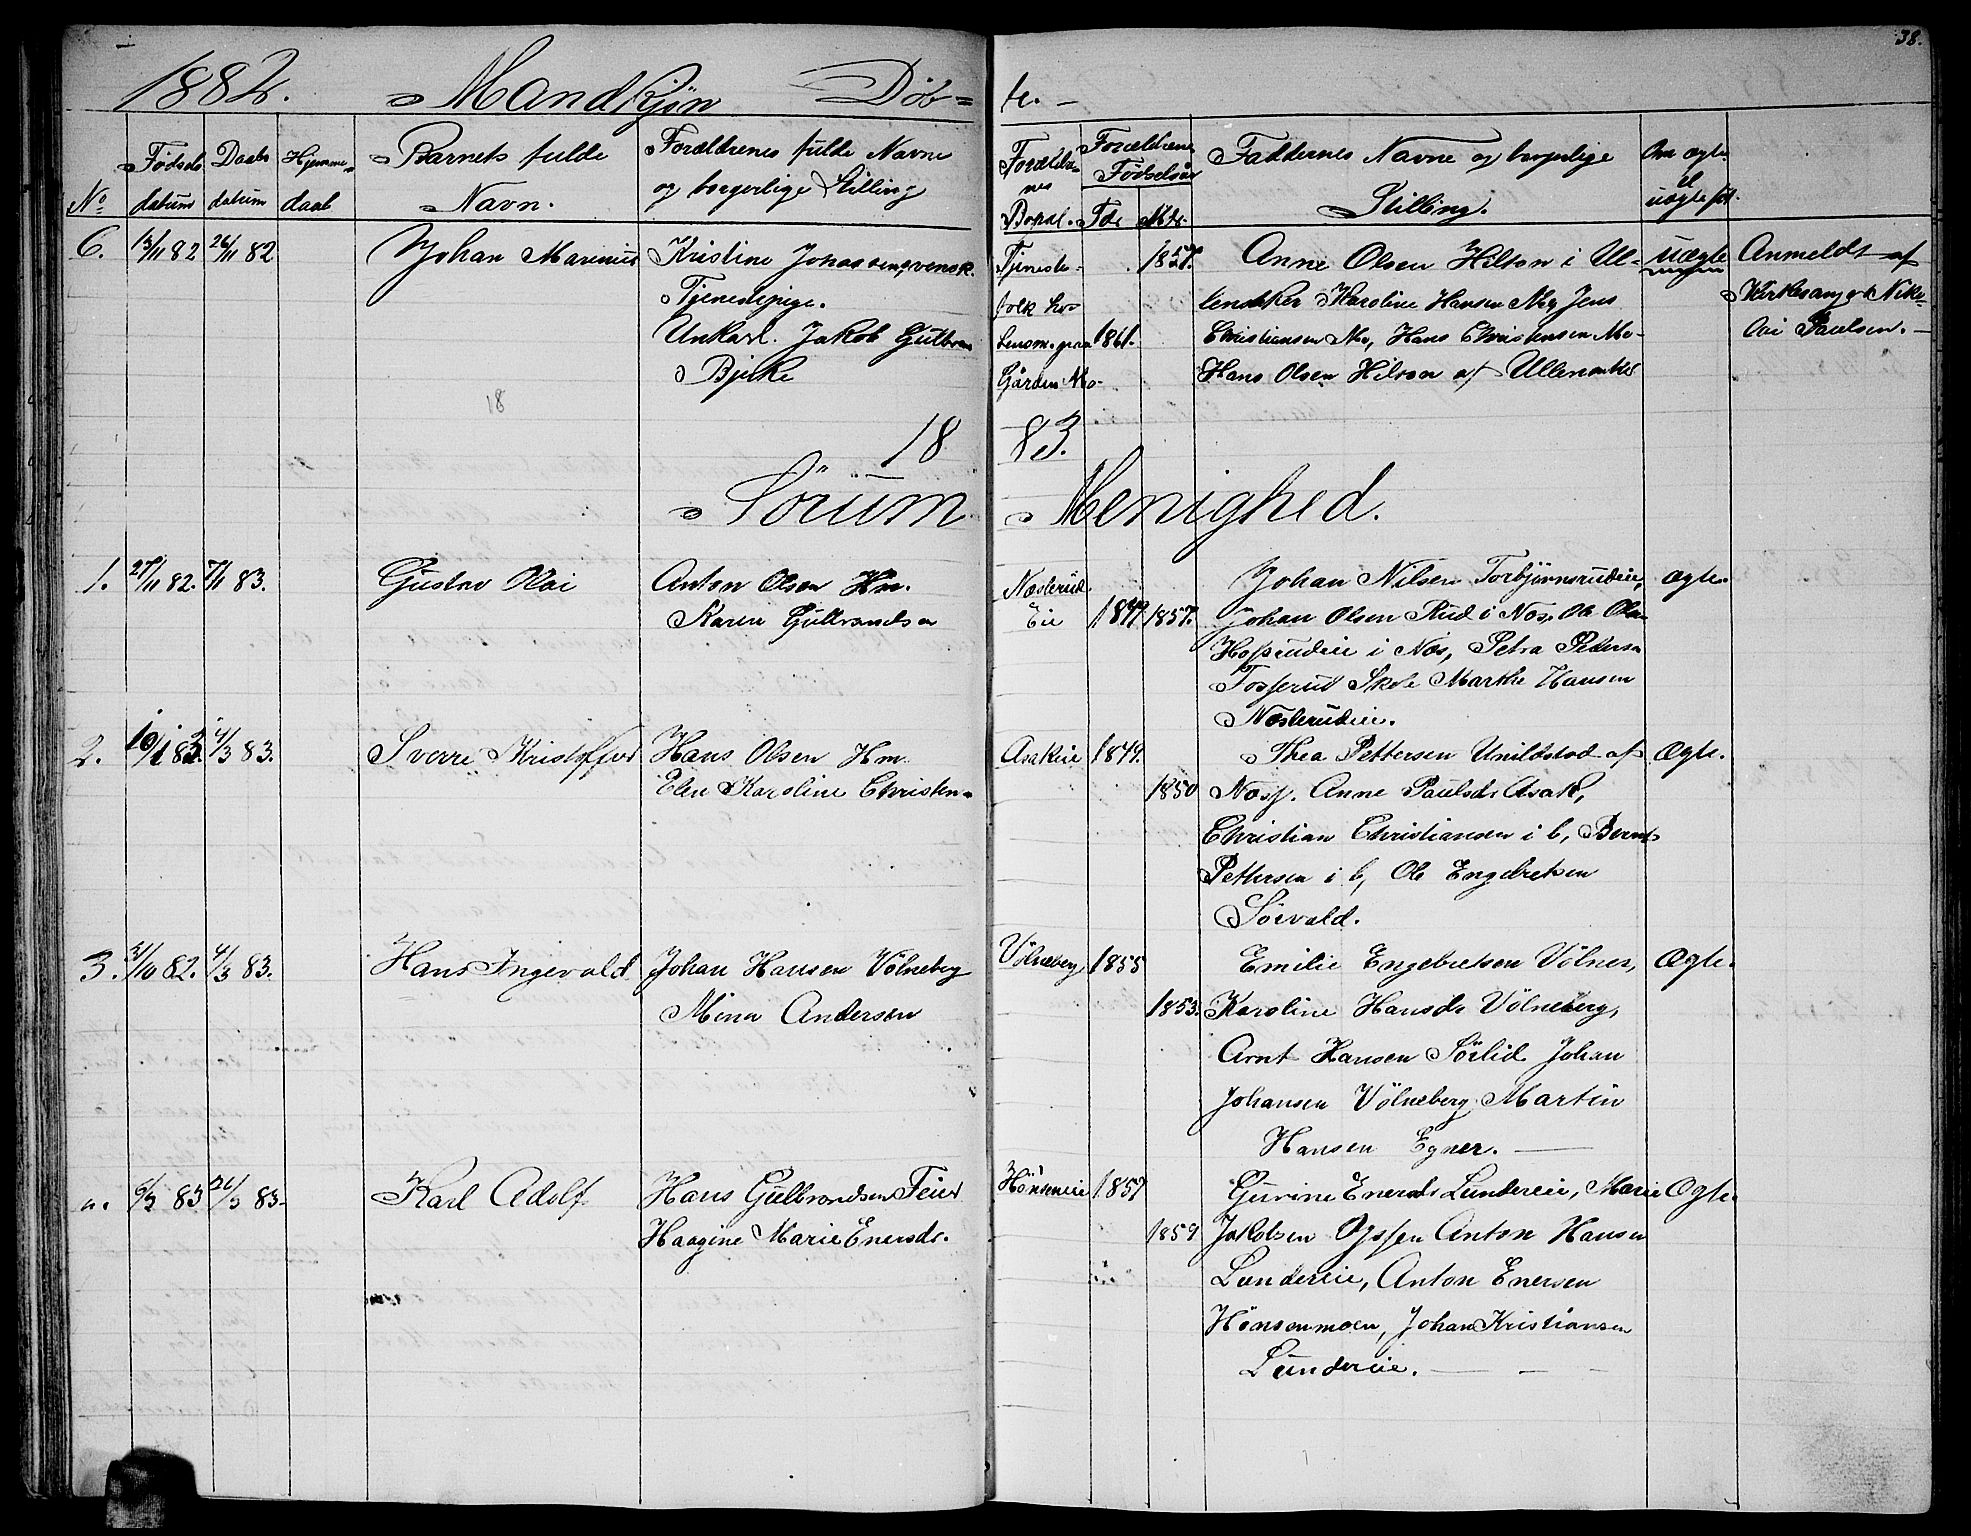 38.
1882. Mandkjøn Døb=
te. —
No
Fødsels datum
Daabs datum
Hjemmedaab
Barnets fulde Navn.
Forældrenes fulde Navne og borgerlige Stilling
Forældrenes Bopæl.
Forældrenes Fødselsaar
Fdr Mdr.
Faddernes Navne og borgerlige Stilling.
Om ægte el uægte fød.
6. 13/11 82 26/11 82 Johan Marinius Kristine Jonassen, svensk
Tjenestepige.
Unkarl. Jakob Gulbrans
Bjerke
Tjeneste-
folk hos
Lensm. paa 1861.
Gården Mo-
1857. Anne Olsen Hilton i Ul-
lensaker Karoline Hansen Mo, Jens
Christiansen Mo, Hans Christensen Mo-
Hans Olsen Hilton af Ullensaker
uægte
Anmeldt af
Kirkesanger Niko-
lai Paulsen. —
18
18 83.
Sörum Menighed.
1. 27/11 82. 7/1 83. Gustav Olai Anton Olsen Hm.
Karen Gulbrandsen
Næslerud
Eie 1849. 1857.
Johan Nilsen Torbjørnsrudeie, Ægte.
Johan Olsen Rud i Næs, Ole Olsen
Hofsrudeie i Næs, Petra Peders
Fosserud Skole Marthe Hansen
Næslerudeie.
2. 10/1 83. 4/3 83. Sverre Kristoffer Hans Olsen Hm.
Elen Karoline Christens
Asakeie 1849.
1850
Thea Pettersen Unildstad af Ægte.
Næs. Anne Paulsdr Asak,
Christian Christiansen i b, Bernt
Pettersen i b, Ole Engebretsen
Sörvald.
3. 31/10 82. 4/3 83. Hans Ingevald Johan Hansen Völneberg
Mina Andersen
Völneberg 1855
1853.
Emilie Engebretsen Völner, Ægte.
Karoline Hansdr Völneberg,
Arnt Hansen Sörlid Johan
Johansen Völneberg Martin
Hansen Egner. —
4. 6/2 83 26/3 83. Karl Adolf. Hans Gulbrandsen Feier
Haagine Marie Enersdr.
Hönseneie 1857
1859
Gurine Enersdr Lundereie, Marie Ægte.
Jakobsen Anton Hansen
Lundereie, Anton Enersen
Hönsenmoen, Johan Kristiansen
Lundereie. — —